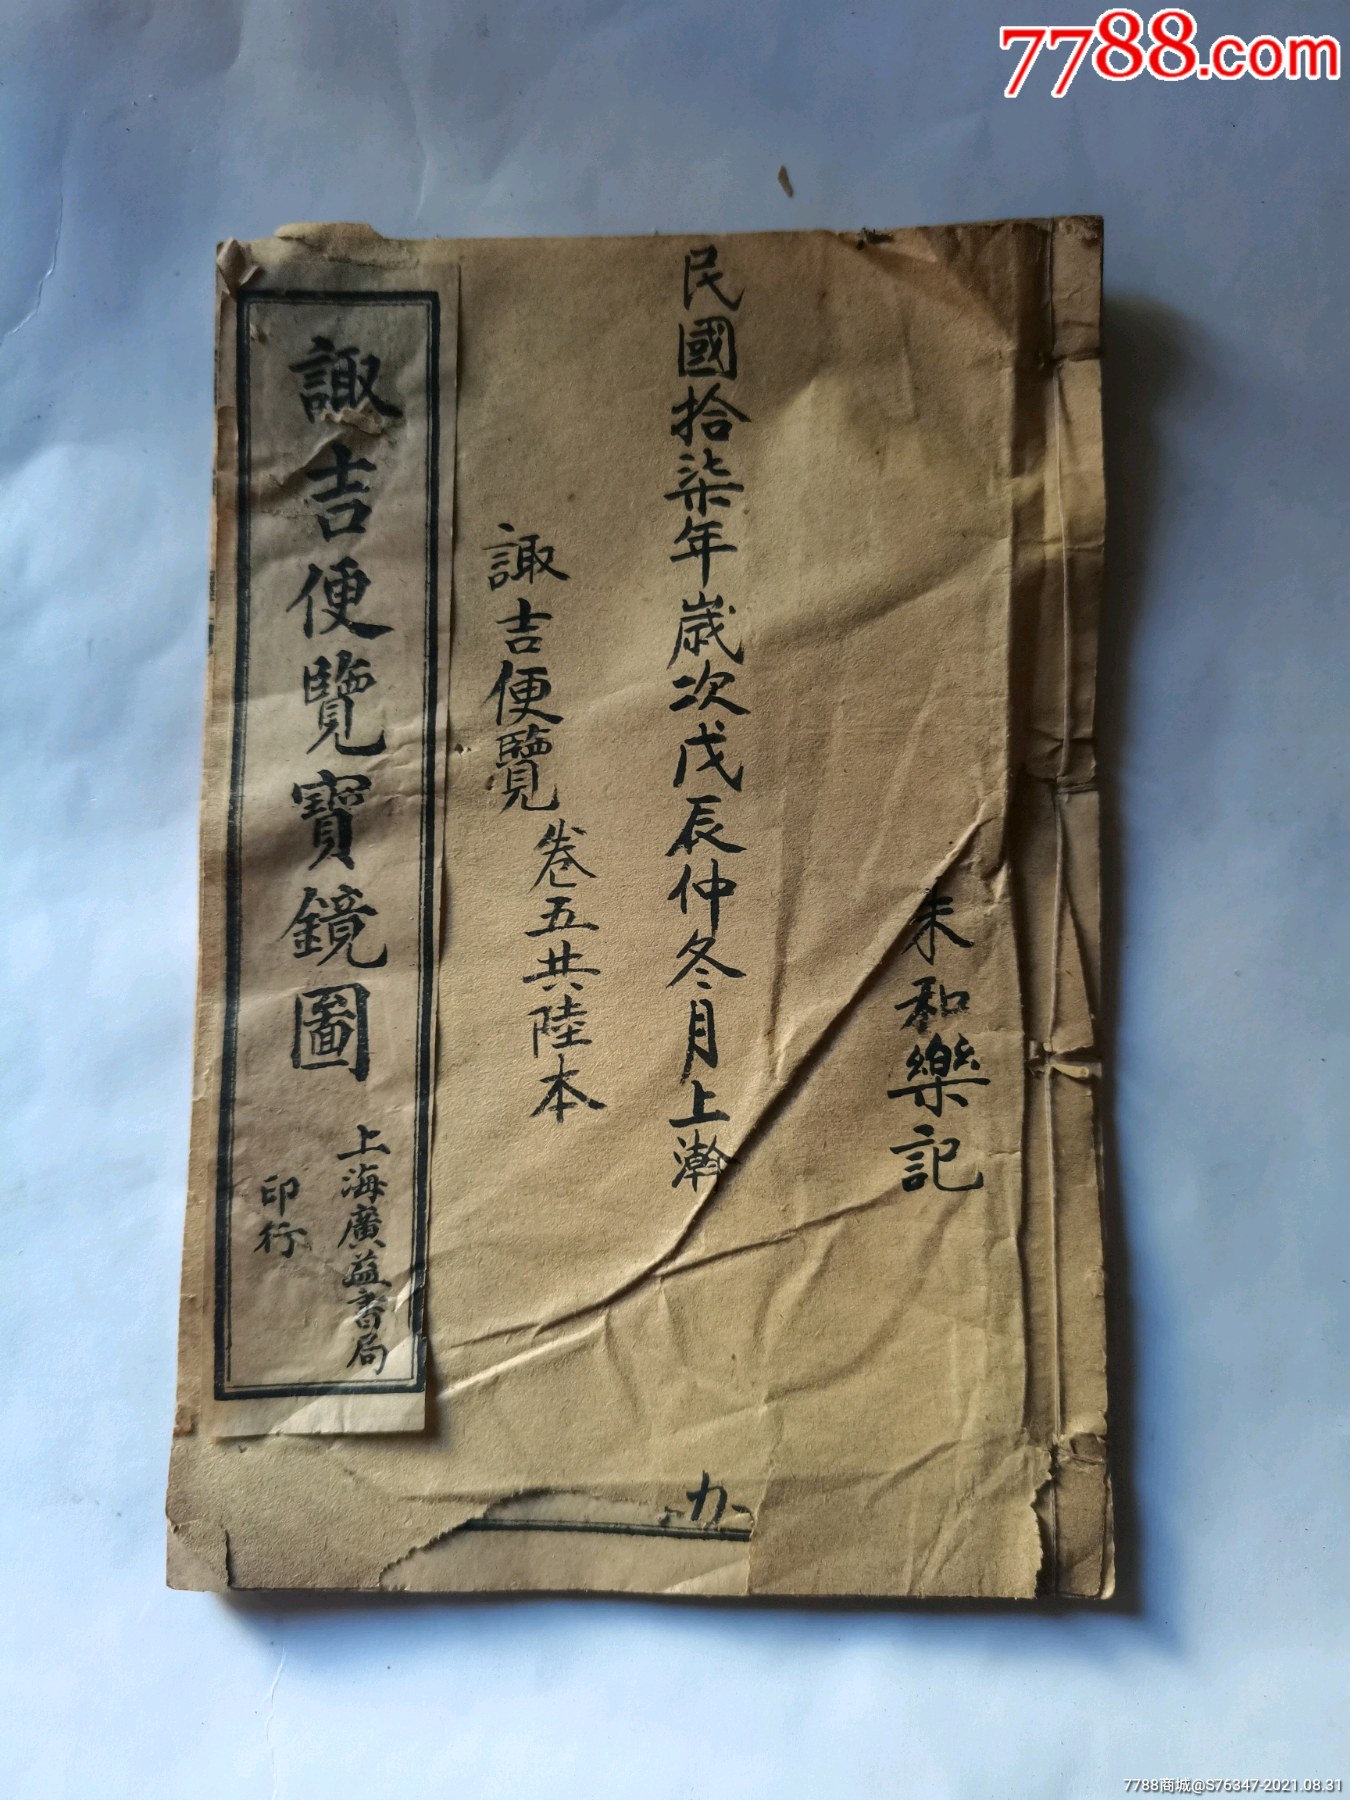 7788.com
朱和樂記
民國拾柒年歲次戊辰仲冬月上瀚
諏吉便覽
卷五共陸本
諏吉便覽寶鏡圖
上海廣益書局
印行
7788商城@S76347-2021.08.31